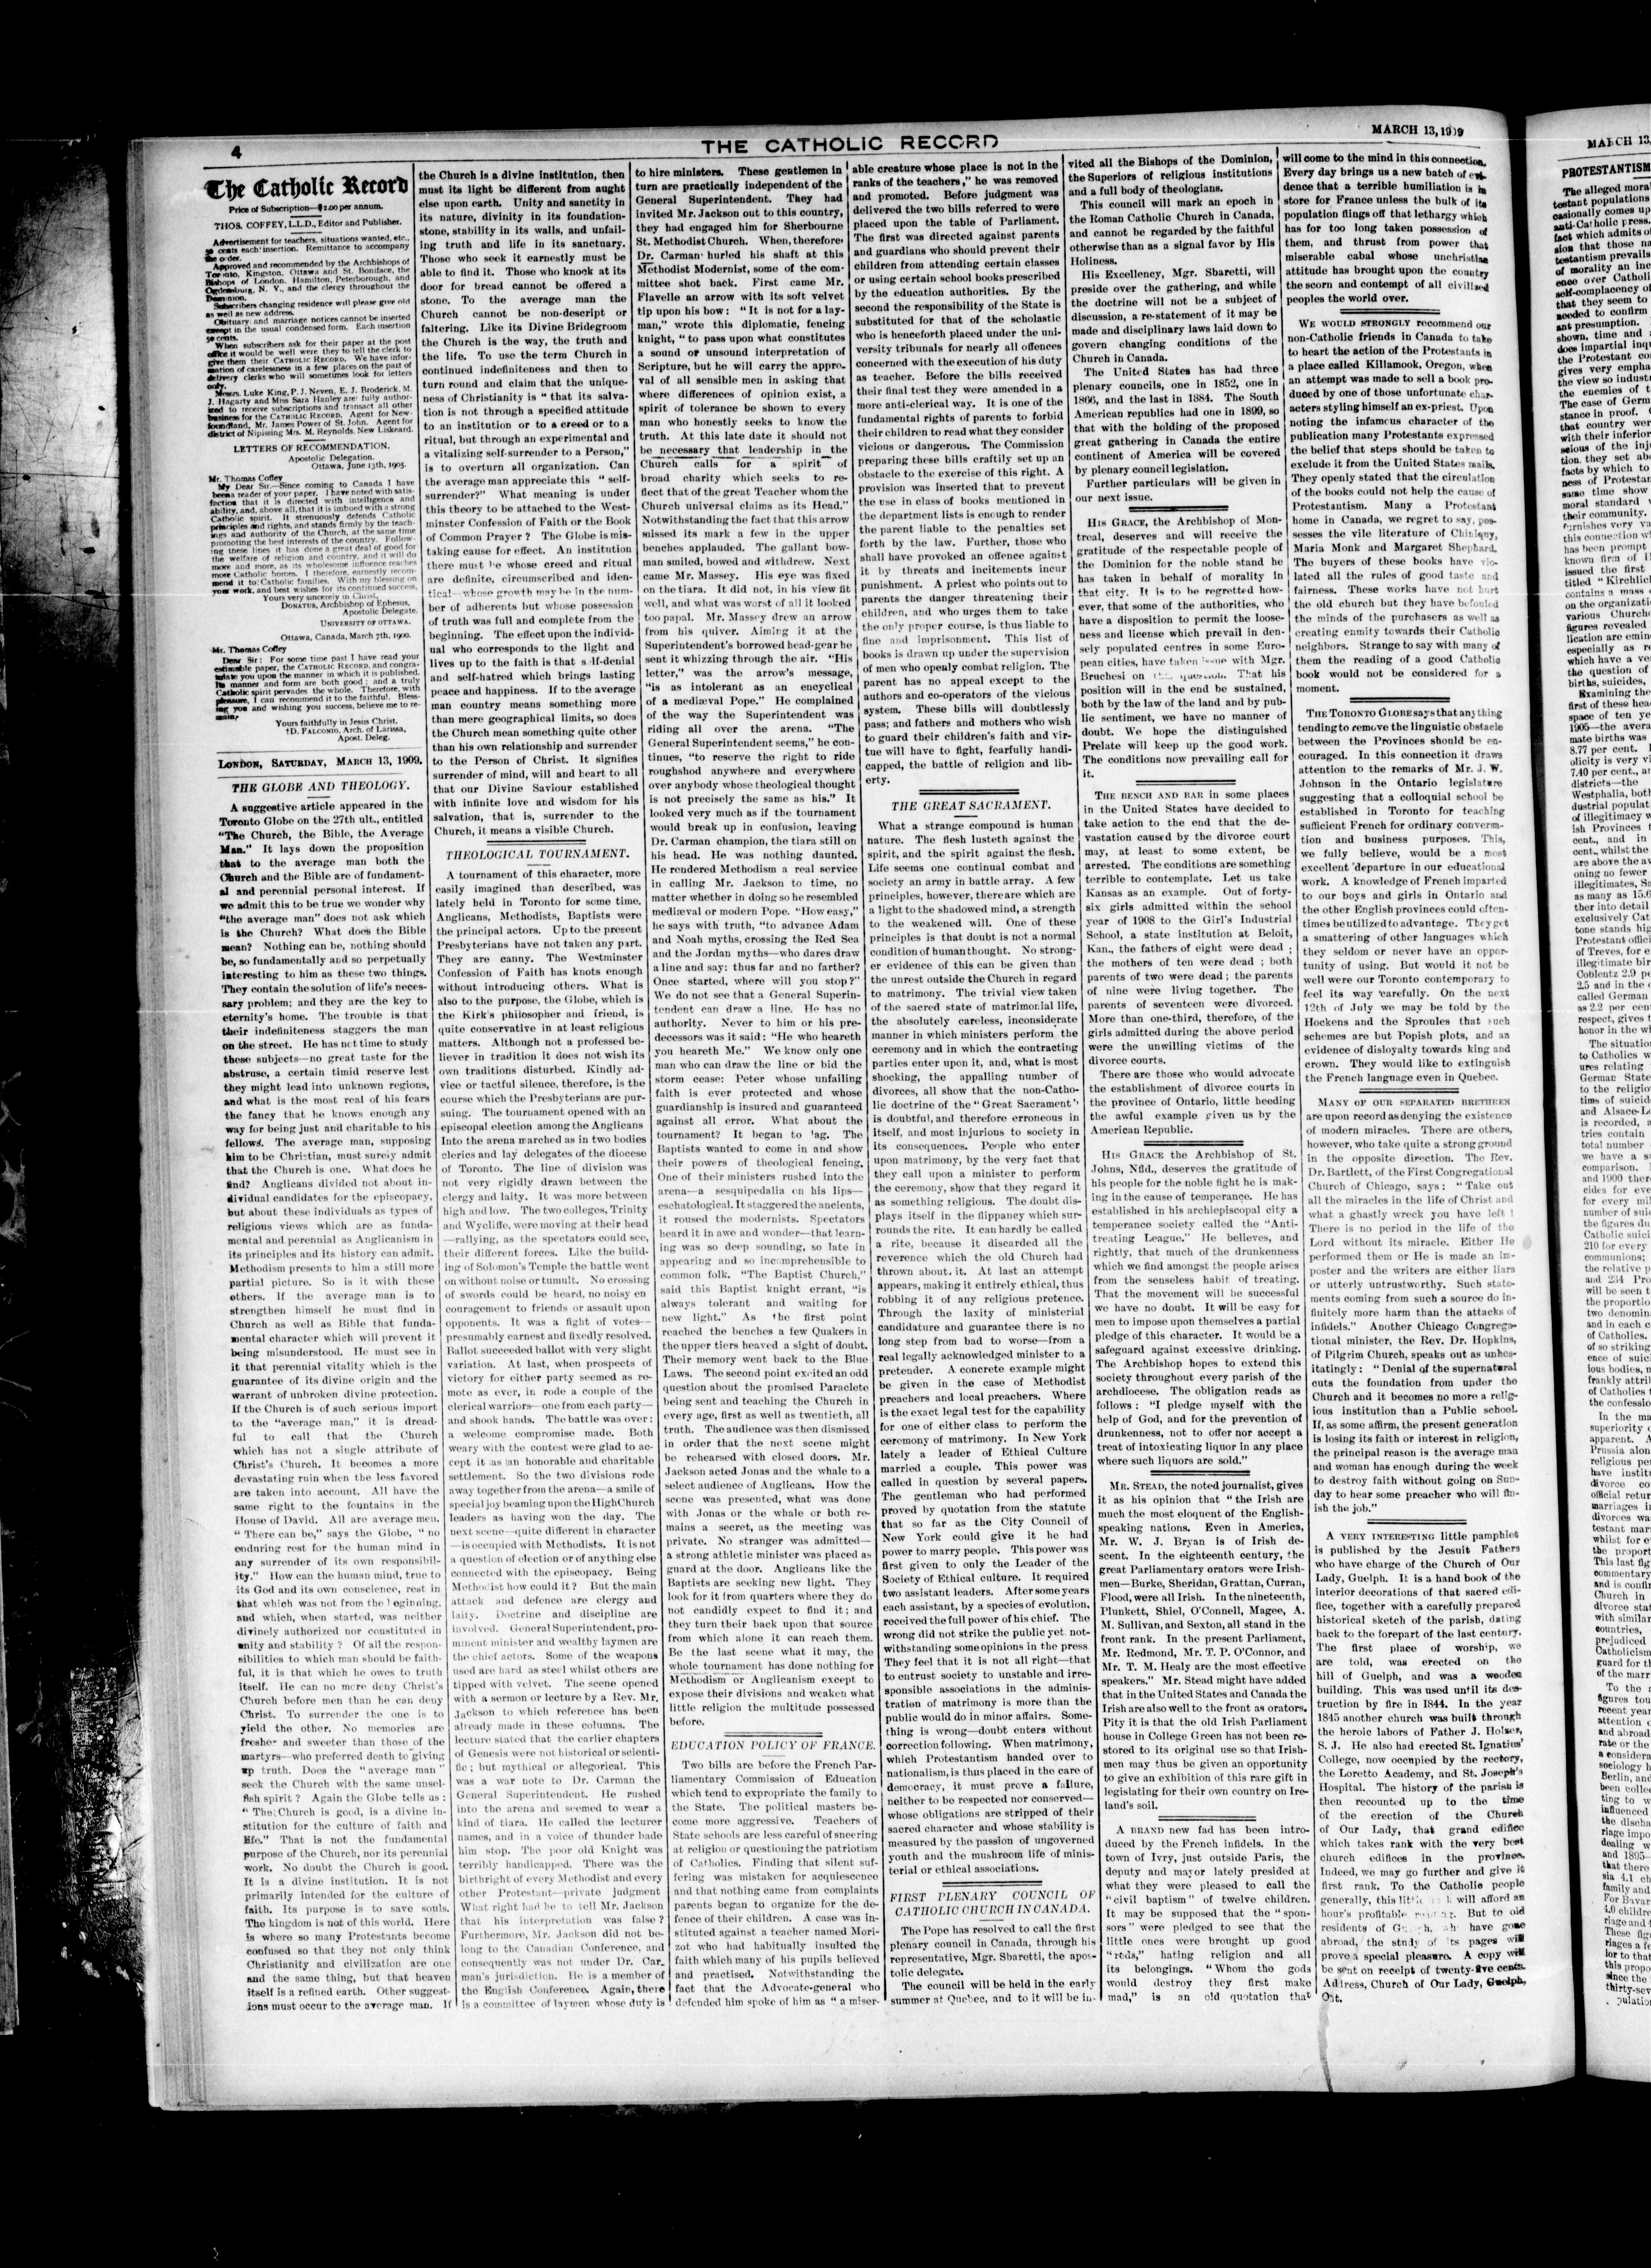 4
THE CATHOLIC RECORD
MARCH 13, 1909
The Catholic Record
Price of Subscription—$2.00 per annum.
THOS. COFFEY, L.L.D., Editor and Publisher.
Advertisement for teachers, situations wanted, etc.,
50 cents each insertion. Remittance to accompany
the order.
Approved and recommended by the Archbishops of
Toronto, Kingston, Ottawa and St. Boniface, the
Bishops of London, Hamilton, Peterborough, and
Ogdensburg, N. Y., and the clergy throughout the
Dominion.
Subscribers changing residence will please give old
as well as new address.
Obituary and marriage notices cannot be inserted
except in the usual condensed form. Each insertion
50 cents.
When subscribers ask for their paper at the post
office it would be well were they to tell the clerk to
give them their CATHOLIC RECORD. We have infor-
mation of carelessness in a few places on the part of
delivery clerks who will sometimes look for letters
only.
Messrs. Luke King, P. J. Neven, E. J. Broderick, M.
J. Hagarty and Miss Sara Hanley are fully author-
ized to receive subscriptions and transact all other
business for the CATHOLIC RECORD. Agent for New-
foundland, Mr. James Power of St. John. Agent for
district of Nipissing Mrs. M. Reynolds, New Liskeard.
LETTERS OF RECOMMENDATION.
Apostolic Delegation.
Ottawa, June 13th, 1905.
Mr. Thomas Coffey
My Dear Sir.—Since coming to Canada I have
been a reader of your paper. I have noted with satis-
faction that it is directed with intelligence and
ability, and, above all, that it is imbued with a strong
Catholic spirit. It strenuously defends Catholic
principles and rights, and stands firmly by the teach-
ings and authority of the Church, at the same time
promoting the best interests of the country. Follow-
ing these lines it has done a great deal of good for
the welfare of religion and country, and it will do
more and more, as its wholesome influence reaches
more Catholic homes. I therefore, earnestly recom-
mend it to Catholic families. With my blessing on
your work, and best wishes for its continued success,
Yours very sincerely in Christ,
DONATUS, Archbishop of Ephesus,
Apostolic Delegate.
UNIVERSITY OF OTTAWA.
Ottawa, Canada, March 7th, 1900.
Mr. Thomas Coffey
Dear Sir: For some time past I have read your
estimable paper, the CATHOLIC RECORD, and congra-
tulate you upon the manner in which it is published.
Its manner and form are both good; and a truly
Catholic spirit pervades the whole. Therefore, with
pleasure, I can recommend it to the faithful. Bless-
ing you and wishing you success, believe me to re-
main,
Yours faithfully in Jesus Christ.
†D. FALCONIO, Arch. of Larissa,
Apost. Deleg.
LONDON, SATURDAY, MARCH 13, 1909.
THE GLOBE AND THEOLOGY.
A suggestive article appeared in the
Toronto Globe on the 27th ult., entitled
"The Church, the Bible, the Average
Man." It lays down the proposition
that to the average man both the
Church and the Bible are of fundament-
al and perennial personal interest. If
we admit this to be true we wonder why
"the average man" does not ask which
is the Church? What does the Bible
mean? Nothing can be, nothing should
be, so fundamentally and so perpetually
interesting to him as these two things.
They contain the solution of life's neces-
sary problem; and they are the key to
eternity's home. The trouble is that
their indefiniteness staggers the man
on the street. He has not time to study
these subjects—no great taste for the
abstruse, a certain timid reserve lest
they might lead into unknown regions,
and what is the most real of his fears
the fancy that he knows enough any
way for being just and charitable to his
fellows. The average man, supposing
him to be Christian, must surely admit
that the Church is one. What does he
find? Anglicans divided not about in-
dividual candidates for the episcopacy,
but about these individuals as types of
religious views which are as funda-
mental and perennial as Anglicanism in
its principles and its history can admit.
Methodism presents to him a still more
partial picture. So is it with these
others. If the average man is to
strengthen himself he must find in
Church as well as Bible that funda-
mental character which will prevent it
being misunderstood. He must see in
it that perennial vitality which is the
guarantee of its divine origin and the
warrant of unbroken divine protection.
If the Church is of such serious import
to the "average man," it is dread-
ful to call that the Church
which has not a single attribute of
Christ's Church. It becomes a more
devastating ruin when the less favored
are taken into account. All have the
same right to the fountains in the
House of David. All are average men.
"There can be," says the Globe, "no
enduring rest for the human mind in
any surrender of its own responsibil-
ity." How can the human mind, true to
its God and its own conscience, rest in
that which was not from the beginning,
and which, when started, was neither
divinely authorized nor constituted in
unity and stability? Of all the respon-
sibilities to which man should be faith-
ful, it is that which he owes to truth
itself. He can no more deny Christ's
Church before men than he can deny
Christ. To surrender the one is to
yield the other. No memories are
fresher and sweeter than those of the
martyrs—who preferred death to giving
up truth. Does the "average man"
seek the Church with the same unsel-
fish spirit? Again the Globe tells us:
"The Church is good, is a divine in-
stitution for the culture of faith and
life." That is not the fundamental
purpose of the Church, nor its perennial
work. No doubt the Church is good.
It is a divine institution. It is not
primarily intended for the culture of
faith. Its purpose is to save souls.
The kingdom is not of this world. Here
is where so many Protestants become
confused so that they not only think
Christianity and civilization are one
and the same thing, but that heaven
itself is a refined earth. Other suggest-
ions must occur to the average man. If
the Church is a divine institution, then
must its light be different from aught
else upon earth. Unity and sanctity in
its nature, divinity in its foundation-
stone, stability in its walls, and unfail-
ing truth and life in its sanctuary.
Those who seek it earnestly must be
able to find it. Those who knock at its
door for bread cannot be offered a
stone. To the average man the
Church cannot be non-descript or
faltering. Like its Divine Bridegroom
the Church is the way, the truth and
the life. To use the term Church in
continued indefiniteness and then to
turn round and claim that the unique-
ness of Christianity is "that its salva-
tion is not through a specified attitude
to an institution or to a creed or to a
ritual, but through an experimental and
a vitalizing self-surrender to a Person,"
is to overturn all organization. Can
the average man appreciate this "self-
surrender?" What meaning is under
this theory to be attached to the West-
minster Confession of Faith or the Book
of Common Prayer? The Globe is mis-
taking cause for effect. An institution
there must be whose creed and ritual
are definite, circumscribed and iden-
tical—whose growth may be in the num-
ber of adherents but whose possession
of truth was full and complete from the
beginning. The effect upon the individ-
ual who corresponds to the light and
lives up to the faith is that self-denial
and self-hatred which brings lasting
peace and happiness. If to the average
man country means something more
than mere geographical limits, so does
the Church mean something quite other
than his own relationship and surrender
to the Person of Christ. It signifies
surrender of mind, will and heart to all
that our Divine Saviour established
with infinite love and wisdom for his
salvation, that is, surrender to the
Church, it means a visible Church.
THEOLOGICAL TOURNAMENT.
A tournament of this character, more
easily imagined than described, was
lately held in Toronto for some time.
Anglicans, Methodists, Baptists were
the principal actors. Up to the present
Presbyterians have not taken any part.
They are canny. The Westminster
Confession of Faith has knots enough
without introducing others. What is
also to the purpose, the Globe, which is
the Kirk's philosopher and friend, is
quite conservative in at least religious
matters. Although not a professed be-
liever in tradition it does not wish its
own traditions disturbed. Kindly ad-
vice or tactful silence, therefore, is the
course which the Presbyterians are pur-
suing. The tournament opened with an
episcopal election among the Anglicans
Into the arena marched as in two bodies
clerics and lay delegates of the diocese
of Toronto. The line of division was
not very rigidly drawn between the
clergy and laity. It was more between
high and low. The two colleges, Trinity
and Wycliffe, were moving at their head
—rallying, as the spectators could see,
their different forces. Like the build-
ing of Solomon's Temple the battle went
on without noise or tumult. No crossing
of swords could be heard, no noisy en
couragement to friends or assault upon
opponents. It was a fight of votes—
presumably earnest and fixedly resolved.
Ballot succeeded ballot with very slight
variation. At last, when prospects of
victory for either party seemed as re-
mote as ever, in rode a couple of the
clerical warriors—one from each party—
and shook hands. The battle was over:
a welcome compromise made. Both
weary with the contest were glad to ac-
cept it as an honorable and charitable
settlement. So the two divisions rode
away together from the arena—a smile of
special joy beaming upon the High Church
leaders as having won the day. The
next scene—quite different in character
—is occupied with Methodists. It is not
a question of election or of anything else
connected with the episcopacy. Being
Methodist how could it? But the main
attack and defence are clergy and
laity. Doctrine and discipline are
involved. General Superintendent, pro-
minent minister and wealthy laymen are
the chief actors. Some of the weapons
used are hard as steel whilst others are
tipped with velvet. The scene opened
with a sermon or lecture by a Rev. Mr.
Jackson to which reference has been
already made in these columns. The
lecture stated that the earlier chapters
of Genesis were not historical or scienti-
fic; but mythical or allegorical. This
was a war note to Dr. Carman the
General Superintendent. He rushed
into the arena and seemed to wear a
kind of tiara. He called the lecturer
names, and in a voice of thunder bade
him stop. The poor old Knight was
terribly handicapped. There was the
birthright of every Methodist and every
other Protestant—private judgment
What right had he to tell Mr. Jackson
that his interpretation was false?
Furthermore, Mr. Jackson did not be-
long to the Canadian Conference, and
consequently was not under Dr. Car-
man's jurisdiction. He is a member of
the English Conference. Again, there
is a committee of laymen whose duty is
to hire ministers. These gentlemen in
turn are practically independent of the
General Superintendent. They had
invited Mr. Jackson out to this country,
they had engaged him for Sherbourne
St. Methodist Church. When, therefore,
Dr. Carman hurled his shaft at this
Methodist Modernist, some of the com-
mittee shot back. First came Mr.
Flavelle an arrow with its soft velvet
tip upon his bow: "It is not for a lay-
man," wrote this diplomatic, fencing
knight, "to pass upon what constitutes
a sound or unsound interpretation of
Scripture, but he will carry the appro-
val of all sensible men in asking that
where differences of opinion exist, a
spirit of tolerance be shown to every
man who honestly seeks to know the
truth. At this late date it should not
be necessary that leadership in the
Church calls for a spirit of
broad charity which seeks to re-
flect that of the great Teacher whom the
Church universal claims as its Head."
Notwithstanding the fact that this arrow
missed its mark a few in the upper
benches applauded. The gallant bow-
man smiled, bowed and withdrew. Next
came Mr. Massey. His eye was fixed
on the tiara. It did not, in his view fit
well, and what was worst of all it looked
too papal. Mr. Massey drew an arrow
from his quiver. Aiming it at the
Superintendent's borrowed head-gear he
sent it whizzing through the air. "His
letter," was the arrow's message,
"is as intolerant as an encyclical
of a mediæval Pope." He complained
of the way the Superintendent was
riding all over the arena. "The
General Superintendent seems," he con-
tinues, "to reserve the right to ride
roughshod anywhere and everywhere
over anybody whose theological thought
is not precisely the same as his." It
looked very much as if the tournament
would break up in confusion, leaving
Dr. Carman champion, the tiara still on
his head. He was nothing daunted.
He rendered Methodism a real service
in calling Mr. Jackson to time, no
matter whether in doing so he resembled
mediæval or modern Pope. "How easy,"
he says with truth, "to advance Adam
and Noah myths, crossing the Red Sea
and the Jordan myths—who dares draw
a line and say: thus far and no farther?
Once started, where will you stop?"
We do not see that a General Superin-
tendent can draw a line. He has no
authority. Never to him or his pre-
decessors was it said: "He who heareth
you heareth Me." We know only one
man who can draw the line or bid the
storm cease: Peter whose unfailing
faith is ever protected and whose
guardianship is insured and guaranteed
against all error. What about the
tournament? It began to lag. The
Baptists wanted to come in and show
their powers of theological fencing.
One of their ministers rushed into the
arena—a sesquipedalia on his lips—
eschatological. It staggered the ancients,
it roused the modernists. Spectators
heard it in awe and wonder—that learn-
ing was so deep sounding, so late in
appearing and so incomprehensible to
common folk. "The Baptist Church,"
said this Baptist knight errant, "is
always tolerant and waiting for
new light." As the first point
reached the benches a few Quakers in
the upper tiers heaved a sight of doubt.
Their memory went back to the Blue
Laws. The second point excited an odd
question about the promised Paraclete
being sent and teaching the Church in
every age, first as well as twentieth, all
truth. The audience was then dismissed
in order that the next scene might
be rehearsed with closed doors. Mr.
Jackson acted Jonas and the whale to a
select audience of Anglicans. How the
scene was presented, what was done
with Jonas or the whale or both re-
mains a secret, as the meeting was
private. No stranger was admitted—
a strong athletic minister was placed as
guard at the door. Anglicans like the
Baptists are seeking new light. They
look for it from quarters where they do
not candidly expect to find it; and
they turn their back upon that source
from which alone it can reach them.
Be the last scene what it may, the
whole tournament has done nothing for
Methodism or Anglicanism except to
expose their divisions and weaken what
little religion the multitude possessed
before.
EDUCATION POLICY OF FRANCE.
Two bills are before the French Par-
liamentary Commission of Education
which tend to expropriate the family to
the State. The political masters be-
come more aggressive. Teachers of
State schools are less careful of sneering
at religion or questioning the patriotism
of Catholics. Finding that silent suf-
fering was mistaken for acquiescence
and that nothing came from complaints
parents began to organize for the de-
fence of their children. A case was in-
stituted against a teacher named Mori-
zot who had habitually insulted the
faith which many of his pupils believed
and practised. Notwithstanding the
fact that the Advocate-general who
defended him spoke of him as "a miser-
able creature whose place is not in the
ranks of the teachers," he was removed
and promoted. Before judgment was
delivered the two bills referred to were
placed upon the table of Parliament.
The first was directed against parents
and guardians who should prevent their
children from attending certain classes
or using certain school books prescribed
by the education authorities. By the
second the responsibility of the State is
substituted for that of the scholastic
who is henceforth placed under the uni-
versity tribunals for nearly all offences
concerned with the execution of his duty
as teacher. Before the bills received
their final test they were amended in a
more anti-clerical way. It is one of the
fundamental rights of parents to forbid
their children to read what they consider
vicious or dangerous. The Commission
preparing these bills craftily set up an
obstacle to the exercise of this right. A
provision was inserted that to prevent
the use in class of books mentioned in
the department lists is enough to render
the parent liable to the penalties set
forth by the law. Further, those who
shall have provoked an offence against
it by threats and incitements incur
punishment. A priest who points out to
parents the danger threatening their
children, and who urges them to take
the only proper course, is thus liable to
fine and imprisonment. This list of
books is drawn up under the supervision
of men who openly combat religion. The
parent has no appeal except to the
authors and co-operators of the vicious
system. These bills will doubtlessly
pass; and fathers and mothers who wish
to guard their children's faith and vir-
tue will have to fight, fearfully handi-
capped, the battle of religion and lib-
erty.
THE GREAT SACRAMENT.
What a strange compound is human
nature. The flesh lusteth against the
spirit, and the spirit against the flesh.
Life seems one continual combat and
society an army in battle array. A few
principles, however, there are which are
a light to the shadowed mind, a strength
to the weakened will. One of these
principles is that doubt is not a normal
condition of human thought. No strong-
er evidence of this can be given than
the unrest outside the Church in regard
to matrimony. The trivial view taken
of the sacred state of matrimonial life,
the absolutely careless, inconsiderate
manner in which ministers perform the
ceremony and in which the contracting
parties enter upon it, and, what is most
shocking, the appalling number of
divorces, all show that the non-Catho-
lic doctrine of the "Great Sacrament"
is doubtful, and therefore erroneous in
itself, and most injurious to society in
its consequences. People who enter
upon matrimony, by the very fact that
they call upon a minister to perform
the ceremony, show that they regard it
as something religious. The doubt dis-
plays itself in the flippancy which sur-
rounds the rite. It can hardly be called
a rite, because it discarded all the
reverence which the old Church had
thrown about it. At last an attempt
appears, making it entirely ethical, thus
robbing it of any religious pretence.
Through the laxity of ministerial
candidature and guarantee there is no
long step from bad to worse—from a
real legally acknowledged minister to a
pretender. A concrete example might
be given in the case of Methodist
preachers and local preachers. Where
is the exact legal test for the capability
for one of either class to perform the
ceremony of matrimony. In New York
lately a leader of Ethical Culture
married a couple. This power was
called in question by several papers.
The gentleman who had performed
proved by quotation from the statute
that so far as the City Council of
New York could give it he had
power to marry people. This power was
first given to only the Leader of the
Society of Ethical culture. It required
two assistant leaders. After some years
each assistant, by a species of evolution,
received the full power of his chief. The
wrong did not strike the public yet not-
withstanding some opinions in the press
They feel that it is not all right—that
to entrust society to unstable and irre-
sponsible associations in the adminis-
tration of matrimony is more than the
public would do in minor affairs. Some-
thing is wrong—doubt enters without
correction following. When matrimony,
which Protestantism handed over to
nationalism, is thus placed in the care of
democracy, it must prove a failure,
neither to be respected nor conserved—
whose obligations are stripped of their
sacred character and whose stability is
measured by the passion of ungoverned
youth and the mushroom life of minis-
terial or ethical associations.
FIRST PLENARY COUNCIL OF
CATHOLIC CHURCH IN CANADA.
The Pope has resolved to call the first
plenary council in Canada, through his
representative, Mgr. Sbaretti, the apos-
tolic delegate.
The council will be held in the early
summer at Quebec, and to it will be in-
vited all the Bishops of the Dominion,
the Superiors of religious institutions
and a full body of theologians.
This council will mark an epoch in
the Roman Catholic Church in Canada,
and cannot be regarded by the faithful
otherwise than as a signal favor by His
Holiness.
His Excellency, Mgr. Sbaretti, will
preside over the gathering, and while
the doctrine will not be a subject of
discussion, a re-statement of it may be
made and disciplinary laws laid down to
govern changing conditions of the
Church in Canada.
The United States has had three
plenary councils, one in 1852, one in
1866, and the last in 1884. The South
American republics had one in 1899, so
that with the holding of the proposed
great gathering in Canada the entire
continent of America will be covered
by plenary council legislation.
Further particulars will be given in
our next issue.
HIS GRACE, the Archbishop of Mon-
treal, deserves and will receive the
gratitude of the respectable people of
the Dominion for the noble stand he
has taken in behalf of morality in
that city. It is to be regretted how-
ever, that some of the authorities, who
have a disposition to permit the loose-
ness and license which prevail in den-
sely populated centres in some Euro-
pean cities, have taken issue with Mgr.
Bruchesi on this question. That his
position will in the end be sustained,
both by the law of the land and by pub-
lic sentiment, we have no manner of
doubt. We hope the distinguished
Prelate will keep up the good work.
The conditions now prevailing call for
it.
THE BENCH AND BAR in some places
in the United States have decided to
take action to the end that the de-
vastation caused by the divorce court
may, at least to some extent, be
arrested. The conditions are something
terrible to contemplate. Let us take
Kansas as an example. Out of forty-
six girls admitted within the school
year of 1908 to the Girl's Industrial
School, a state institution at Beloit,
Kan., the fathers of eight were dead;
the mothers of ten were dead; both
parents of two were dead; the parents
of nine were living together. The
parents of seventeen were divorced.
More than one-third, therefore, of the
girls admitted during the above period
were the unwilling victims of the
divorce courts.
There are those who would advocate
the establishment of divorce courts in
the province of Ontario, little heeding
the awful example given us by the
American Republic.
HIS GRACE the Archbishop of St.
Johns, Nfld., deserves the gratitude of
his people for the noble fight he is mak-
ing in the cause of temperance. He has
established in his archiepiscopal city a
temperance society called the "Anti-
treating League." He believes, and
rightly, that much of the drunkenness
which we find amongst the people arises
from the senseless habit of treating.
That the movement will be successful
we have no doubt. It will be easy for
men to impose upon themselves a partial
pledge of this character. It would be a
safeguard against excessive drinking.
The Archbishop hopes to extend this
society throughout every parish of the
archdiocese. The obligation reads as
follows: "I pledge myself with the
help of God, and for the prevention of
drunkenness, not to offer nor accept a
treat of intoxicating liquor in any place
where such liquors are sold."
MR. STEAD, the noted journalist, gives
it as his opinion that "the Irish are
much the most eloquent of the English-
speaking nations. Even in America,
Mr. W. J. Bryan is of Irish de-
scent. In the eighteenth century, the
great Parliamentary orators were Irish-
men—Burke, Sheridan, Grattan, Curran,
Flood, were all Irish. In the nineteenth,
Plunkett, Shiel, O'Connell, Magee, A.
M. Sullivan, and Sexton, all stand in the
front rank. In the present Parliament,
Mr. Redmond, Mr. T. P. O'Connor, and
Mr. T. M. Healy are the most effective
speakers." Mr. Stead might have added
that in the United States and Canada the
Irish are also well to the front as orators.
Pity it is that the old Irish Parliament
house in College Green has not been re-
stored to its original use so that Irish-
men may thus be given an opportunity
to give an exhibition of this rare gift in
legislating for their own country on Ire-
land's soil.
A BRAND new fad has been intro-
duced by the French infidels. In the
town of Ivry, just outside Paris, the
deputy and mayor lately presided at
what they were pleased to call the
"civil baptism" of twelve children.
It may be supposed that the "spon-
sors" were pledged to see that the
little ones were brought up good
"reds," hating religion and all
its belongings. "Whom the gods
would destroy they first make
mad," is an old quotation that
will come to the mind in this connection.
Every day brings us a new batch of evi-
dence that a terrible humiliation is in
store for France unless the bulk of its
population flings off that lethargy which
has for too long taken possession of
them, and thrust from power that
miserable cabal whose unchristian
attitude has brought upon the country
the scorn and contempt of all civilized
peoples the world over.
WE WOULD STRONGLY recommend our
non-Catholic friends in Canada to take
to heart the action of the Protestants in
a place called Killamook, Oregon, when
an attempt was made to sell a book pro-
duced by one of those unfortunate char-
acters styling himself an ex-priest. Upon
noting the infamous character of the
publication many Protestants expressed
the belief that steps should be taken to
exclude it from the United States mails.
They openly stated that the circulation
of the books could not help the cause of
Protestantism. Many a Protestant
home in Canada, we regret to say, pos-
sesses the vile literature of Chiniquy,
Maria Monk and Margaret Shephard.
The buyers of these books have vio-
lated all the rules of good taste and
fairness. These works have not hurt
the old church but they have befouled
the minds of the purchasers as well as
creating enmity towards their Catholic
neighbors. Strange to say with many of
them the reading of a good Catholic
book would not be considered for a
moment.
THE TORONTO GLOBE says that anything
tending to remove the linguistic obstacle
between the Provinces should be en-
couraged. In this connection it draws
attention to the remarks of Mr. J. W.
Johnson in the Ontario legislature
suggesting that a colloquial school be
established in Toronto for teaching
sufficient French for ordinary conversa-
tion and business purposes. This,
we fully believe, would be a most
excellent departure in our educational
work. A knowledge of French imparted
to our boys and girls in Ontario and
the other English provinces could often-
times be utilized to advantage. They get
a smattering of other languages which
they seldom or never have an oppor-
tunity of using. But would it not be
well were our Toronto contemporary to
feel its way carefully. On the next
12th of July we may be told by the
Hockens and the Sproules that such
schemes are but Popish plots, and an
evidence of disloyalty towards king and
crown. They would like to extinguish
the French language even in Quebec.
MANY OF OUR SEPARATED BRETHREN
are upon record as denying the existence
of modern miracles. There are others,
however, who take quite a strong ground
in the opposite direction. The Rev.
Dr. Bartlett, of the First Congregational
Church of Chicago, says: "Take out
all the miracles in the life of Christ and
what a ghastly wreck you have left!
There is no period in the life of the
Lord without its miracle. Either He
performed them or He is made an im-
poster and the writers are either liars
or utterly untrustworthy. Such state-
ments coming from such a source do in-
finitely more harm than the attacks of
infidels." Another Chicago Congrega-
tional minister, the Rev. Dr. Hopkins,
of Pilgrim Church, speaks out as unhes-
itatingly: "Denial of the supernatural
cuts the foundation from under the
Church and it becomes no more a relig-
ious institution than a Public school.
If, as some affirm, the present generation
is losing its faith or interest in religion,
the principal reason is the average man
and woman has enough during the week
to destroy faith without going on Sun-
day to hear some preacher who will fin-
ish the job."
A VERY INTERESTING little pamphlet
is published by the Jesuit Fathers
who have charge of the Church of Our
Lady, Guelph. It is a hand book of the
interior decorations of that sacred edi-
fice, together with a carefully prepared
historical sketch of the parish, dating
back to the forepart of the last century.
The first place of worship, we
are told, was erected on the
hill of Guelph, and was a wooden
building. This was used until its des-
truction by fire in 1844. In the year
1845 another church was built through
the heroic labors of Father J. Holzer,
S. J. He also had erected St. Ignatius'
College, now occupied by the rectory,
the Loretto Academy, and St. Joseph's
Hospital. The history of the parish is
then recounted up to the time
of the erection of the Church
of Our Lady, that grand edifice
which takes rank with the very best
church edifices in the province.
Indeed, we may go further and give it
first rank. To the Catholic people
generally, this little will afford an
hour's profitable But to old
residents of have gone
abroad, the study of its pages will
prove a special pleasure. A copy will
be sent on receipt of twenty-five cents.
Address, Church of Our Lady, Guelph,
Ont.
MARCH 13,
PROTESTANTISM
The alleged mora
testant populations
casionally comes up
anti-Catholic press.
fact which admits of
sion that those na
testantism prevails
of morality an inc
ence over Catholi
self-complacency of
that they seem to
needed to confirm
ant presumption.
shown, time and
does impartial inqu
the Protestant cou
gives very empha
the view so industr
the enemies of t
The case of Germ
stance in proof.
that country wer
with their inferior